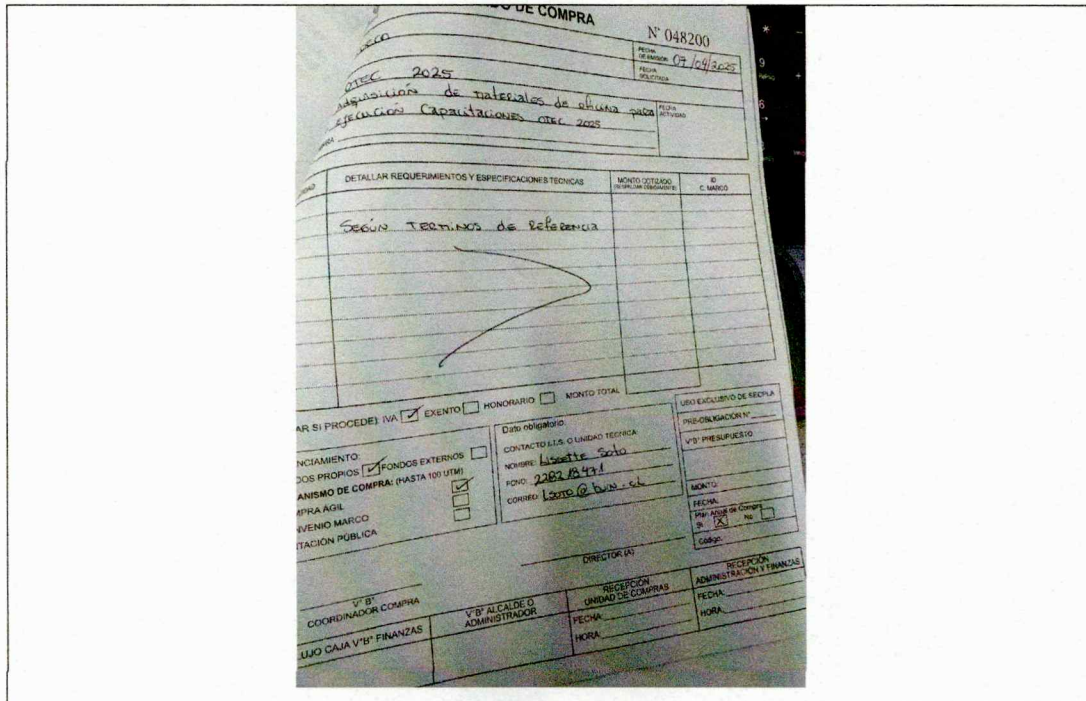 DO DE COMPRA
N° 048200
FECHA DE EMISIÓN 07/09/2025
FECHA SOLICITADA
OTEC 2025
Adquisición de materiales de oficina para
ejecución Capacitaciones OTEC 2025
FECHA ACTIVIDAD
DETALLAR REQUERIMIENTOS Y ESPECIFICACIONES TECNICAS
MONTO COTIZADO
ID C. MARCO
SEGÚN TERMINOS de REFERENCIA
AR SI PROCEDE) IVA EXENTO HONORARIO MONTO TOTAL
NCIAMIENTO:
DOS PROPIOS FONDOS EXTERNOS
ANISMO DE COMPRA: (HASTA 100 UTM)
MPRA ÁGIL
NVENIO MARCO
ITACIÓN PÚBLICA
Dato obligatorio:
CONTACTO I.T.S. O UNIDAD TECNICA:
NOMBRE: Lissette Soto
FONO: 228218471
CORREO: Lsoto@buin.cl
USO EXCLUSIVO DE SECPLA
PRE-OBLIGACIÓN N°
V°B° PRESUPUESTO
MONTO:
FECHA:
Plan Anual de Compra
Si X No
Código:
DIRECTOR (A)
V° B°
COORDINADOR COMPRA
UJO CAJA V°B° FINANZAS
V°B° ALCALDE O ADMINISTRADOR
RECEPCIÓN UNIDAD DE COMPRAS
FECHA:
HORA:
RECEPCIÓN ADMINISTRACIÓN Y FINANZAS
FECHA:
HORA: